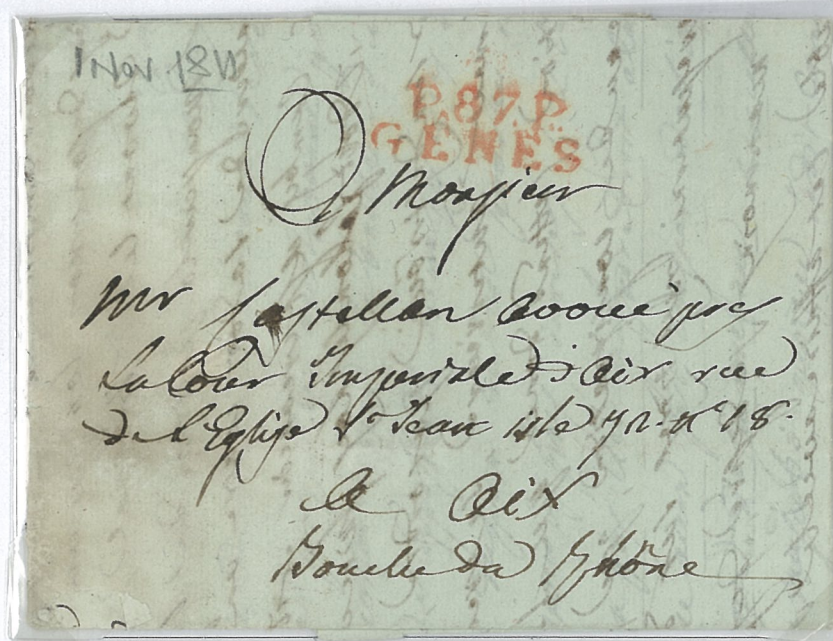 1 Nov 1811
P.87.P.
GENES
A Monsieur
Mr Castellan avoué pres
La Cour Imperiale d'Aix rue
de L'Eglise St Jean isle 72. n° 18.
A Aix
Bouche du Rhône